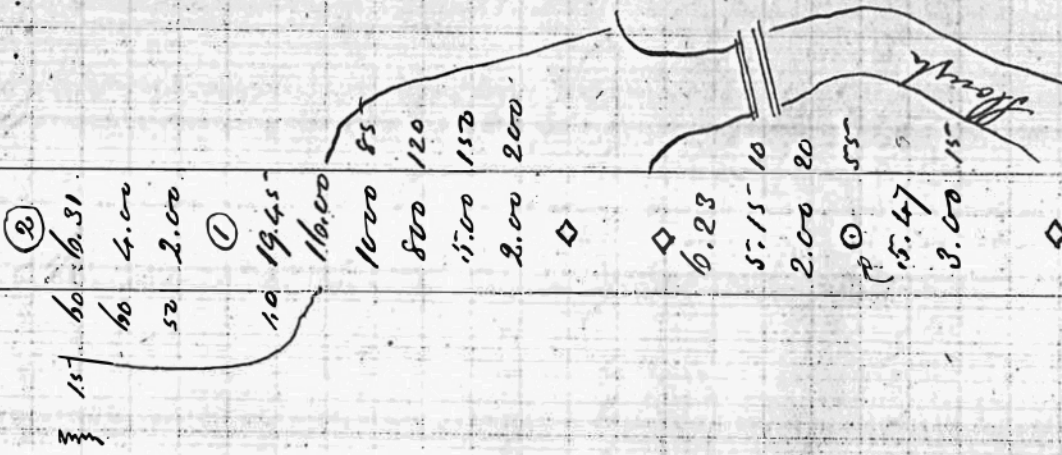 ②
15 60 6.31
60 4.00
50 2.00
①
10 19.45
16.00
1000 85
800 120
5.00 150
2.00 200
6.23
5.15 10
2.00 20
① 55
5.47
3.00 15
Slough